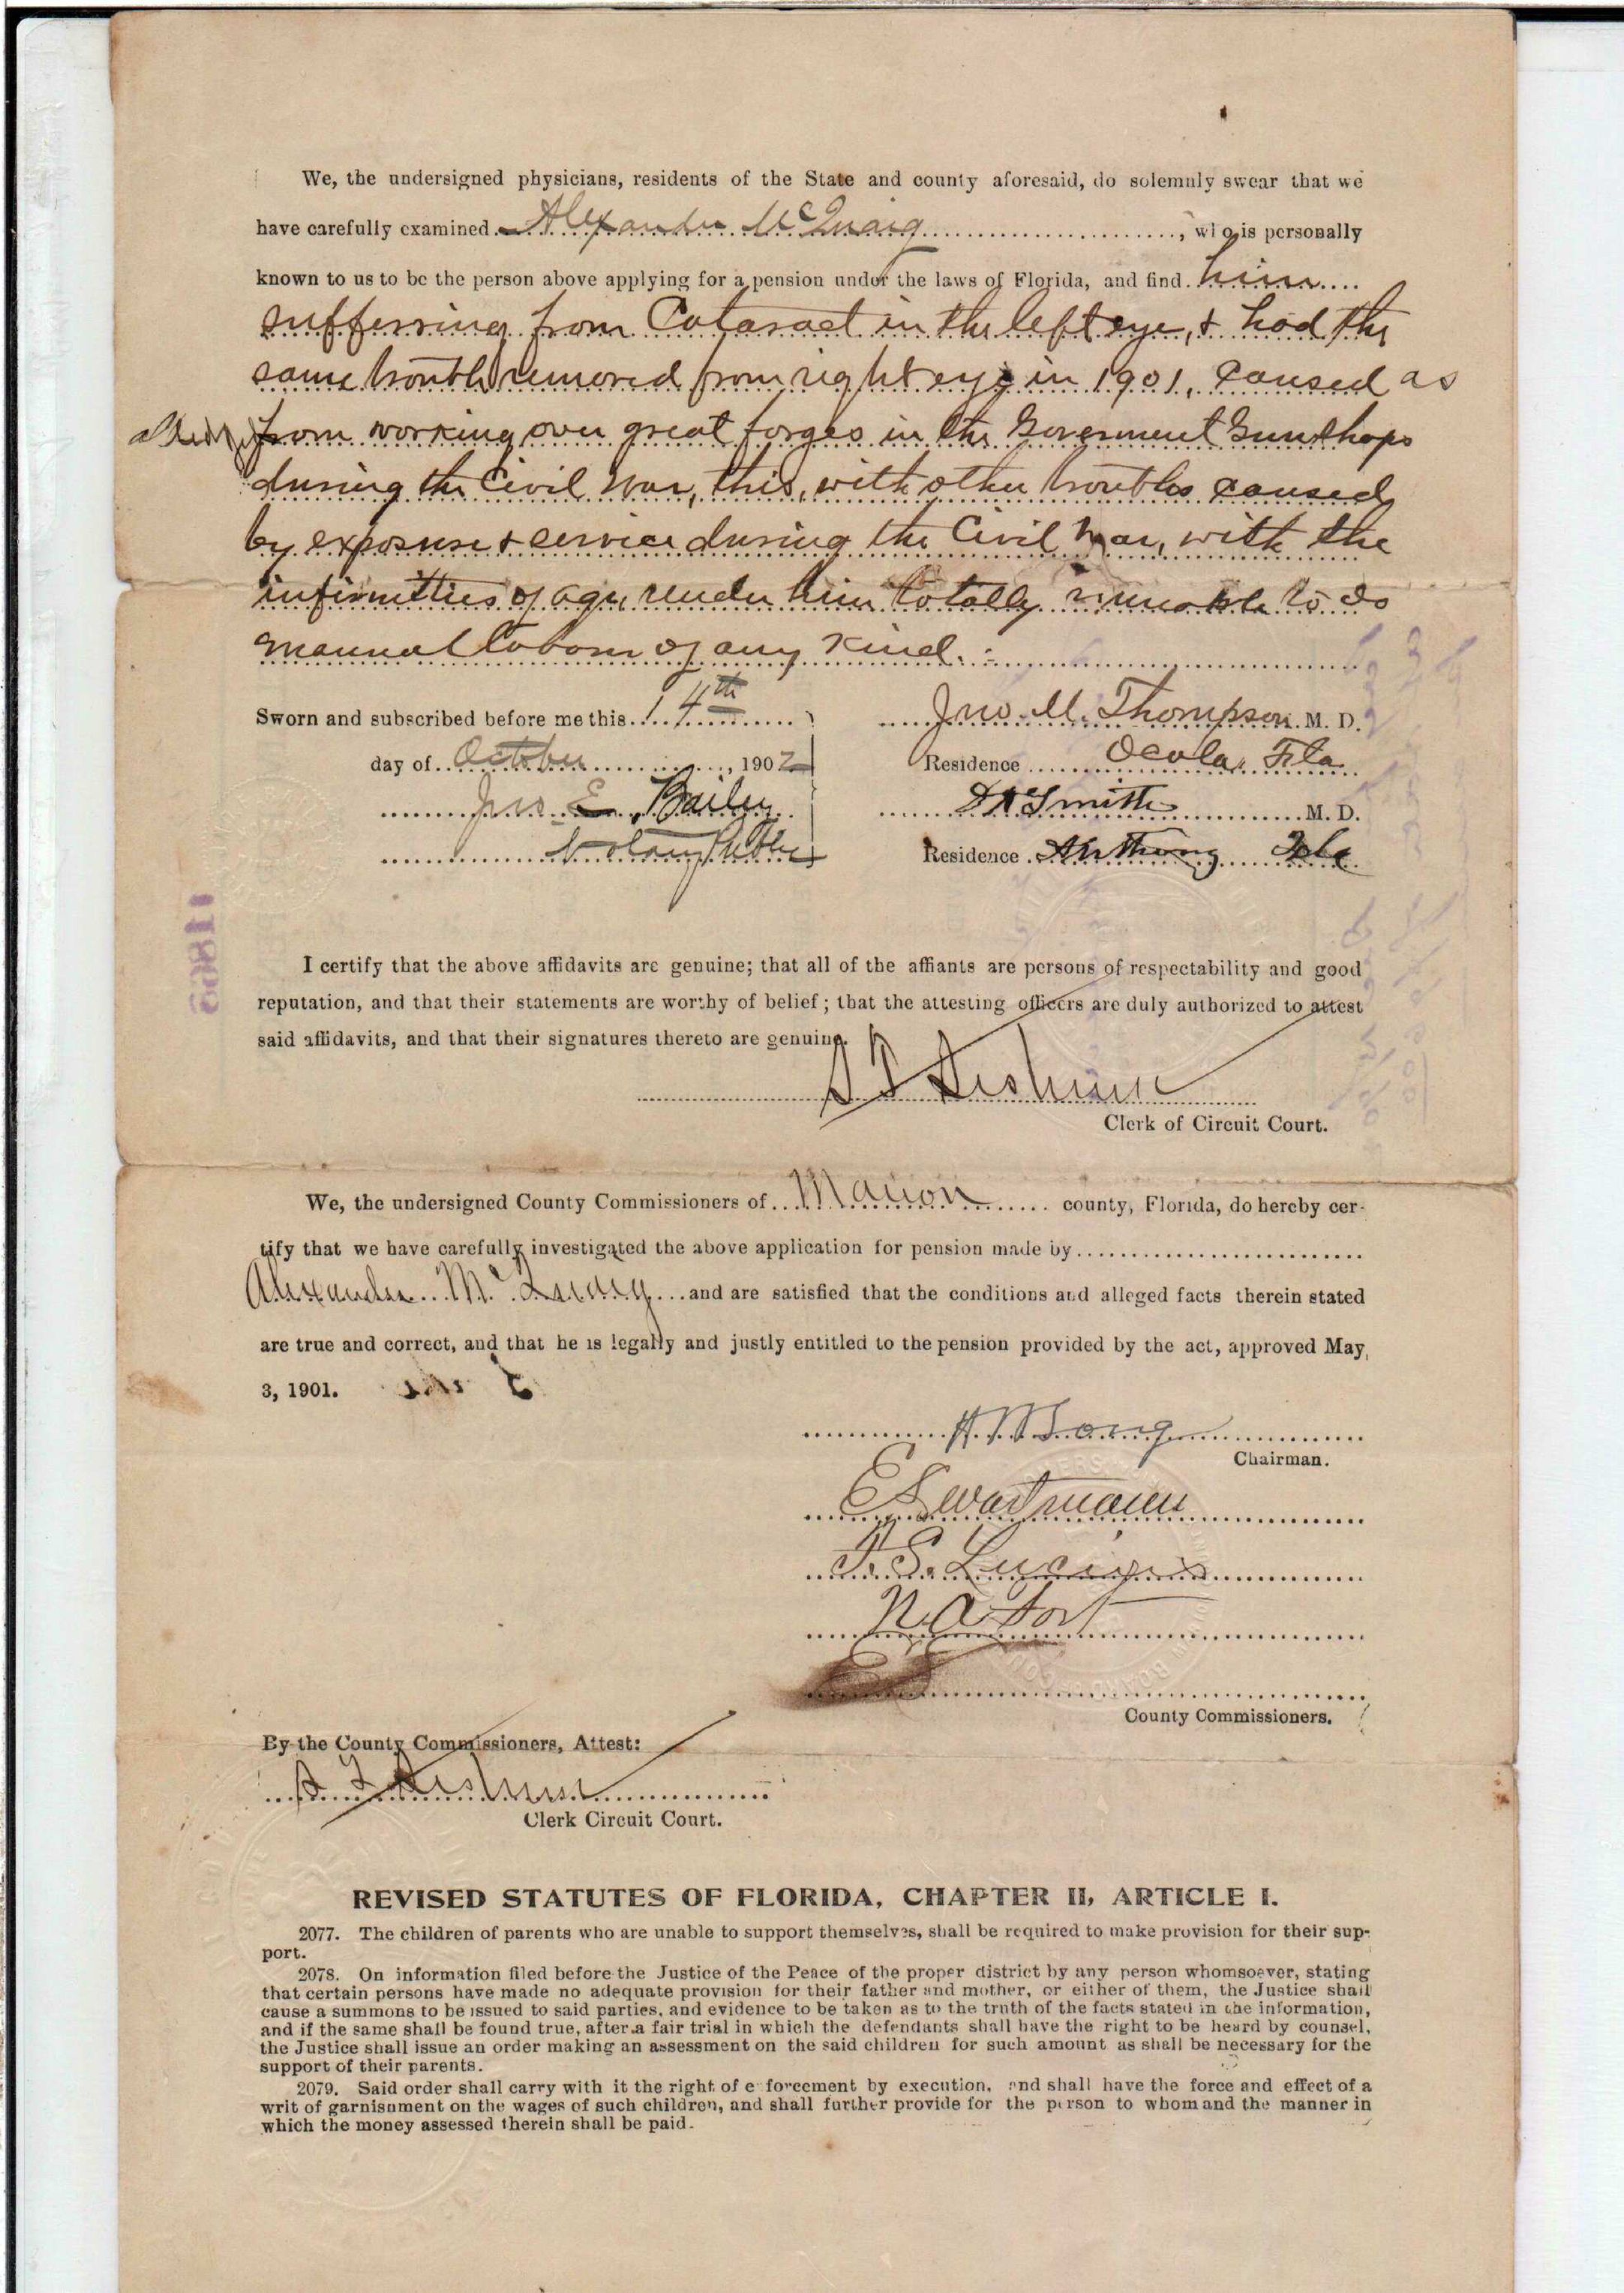 We, the undersigned physicians, residents of the State and county aforesaid, do solemnly swear that we
have carefully examined Alexander McQuaig, who is personally
known to us to be the person above applying for a pension under the laws of Florida, and find him
suffering from Cataract in the left eye, & had the
same trouble removed from right eye in 1901, caused as
alleged, from working over great forges in the Goverment Gunshops
during the Civil War, this, with other troubles caused
by exposure & service during the Civil War, with the
infirmities of age, render him totally unable to do
manual labour of any kind.
Sworn and subscribed before me this 14th
day of October, 1902
Jno. E. Bailey
Notary Public
Jno. M. Thompson M. D.
Residence Ocala, Fla
D A Smith M. D.
Residence Anthony Fla
11866
I certify that the above affidavits are genuine; that all of the affiants are persons of respectability and good
reputation, and that their statements are worthy of belief; that the attesting officers are duly authorized to attest
said affidavits, and that their signatures thereto are genuine.
Clerk of Circuit Court.
We, the undersigned County Commissioners of Marion county, Florida, do hereby cer-
tify that we have carefully investigated the above application for pension made by
Alexander McQuaig and are satisfied that the conditions and alleged facts therein stated
are true and correct, and that he is legally and justly entitled to the pension provided by the act, approved May
3, 1901.
Long
Chairman.
E L Wartmann
N A Fort
County Commissioners.
By the County Commissioners, Attest:
Clerk Circuit Court.
REVISED STATUTES OF FLORIDA, CHAPTER II, ARTICLE I.
2077. The children of parents who are unable to support themselves, shall be required to make provision for their sup-
port.
2078. On information filed before the Justice of the Peace of the proper district by any person whomsoever, stating
that certain persons have made no adequate provision for their father and mother, or either of them, the Justice shall
cause a summons to be issued to said parties, and evidence to be taken as to the truth of the facts stated in the information,
and if the same shall be found true, after a fair trial in which the defendants shall have the right to be heard by counsel,
the Justice shall issue an order making an assessment on the said children for such amount as shall be necessary for the
support of their parents.
2079. Said order shall carry with it the right of enforcement by execution, and shall have the force and effect of a
writ of garnishment on the wages of such children, and shall further provide for the person to whom and the manner in
which the money assessed therein shall be paid.